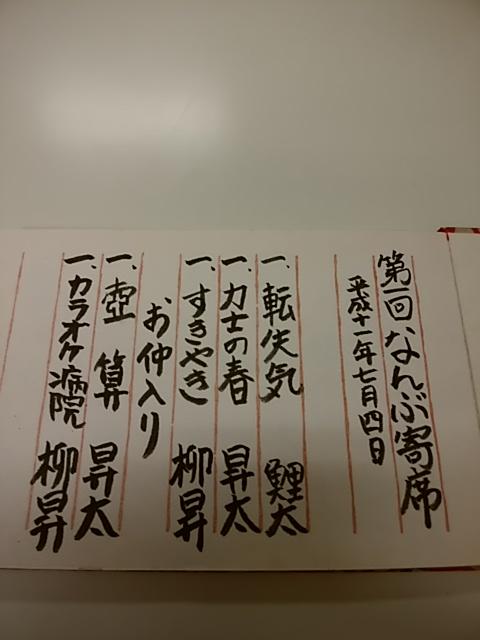 第一回なんぶ寄席
平成十一年七月四日
一、転失気 鯉太
一、力士の春 昇太
一、すきやき 柳昇
お仲入り
一、壺算 昇太
一、カラオケ病院 柳昇